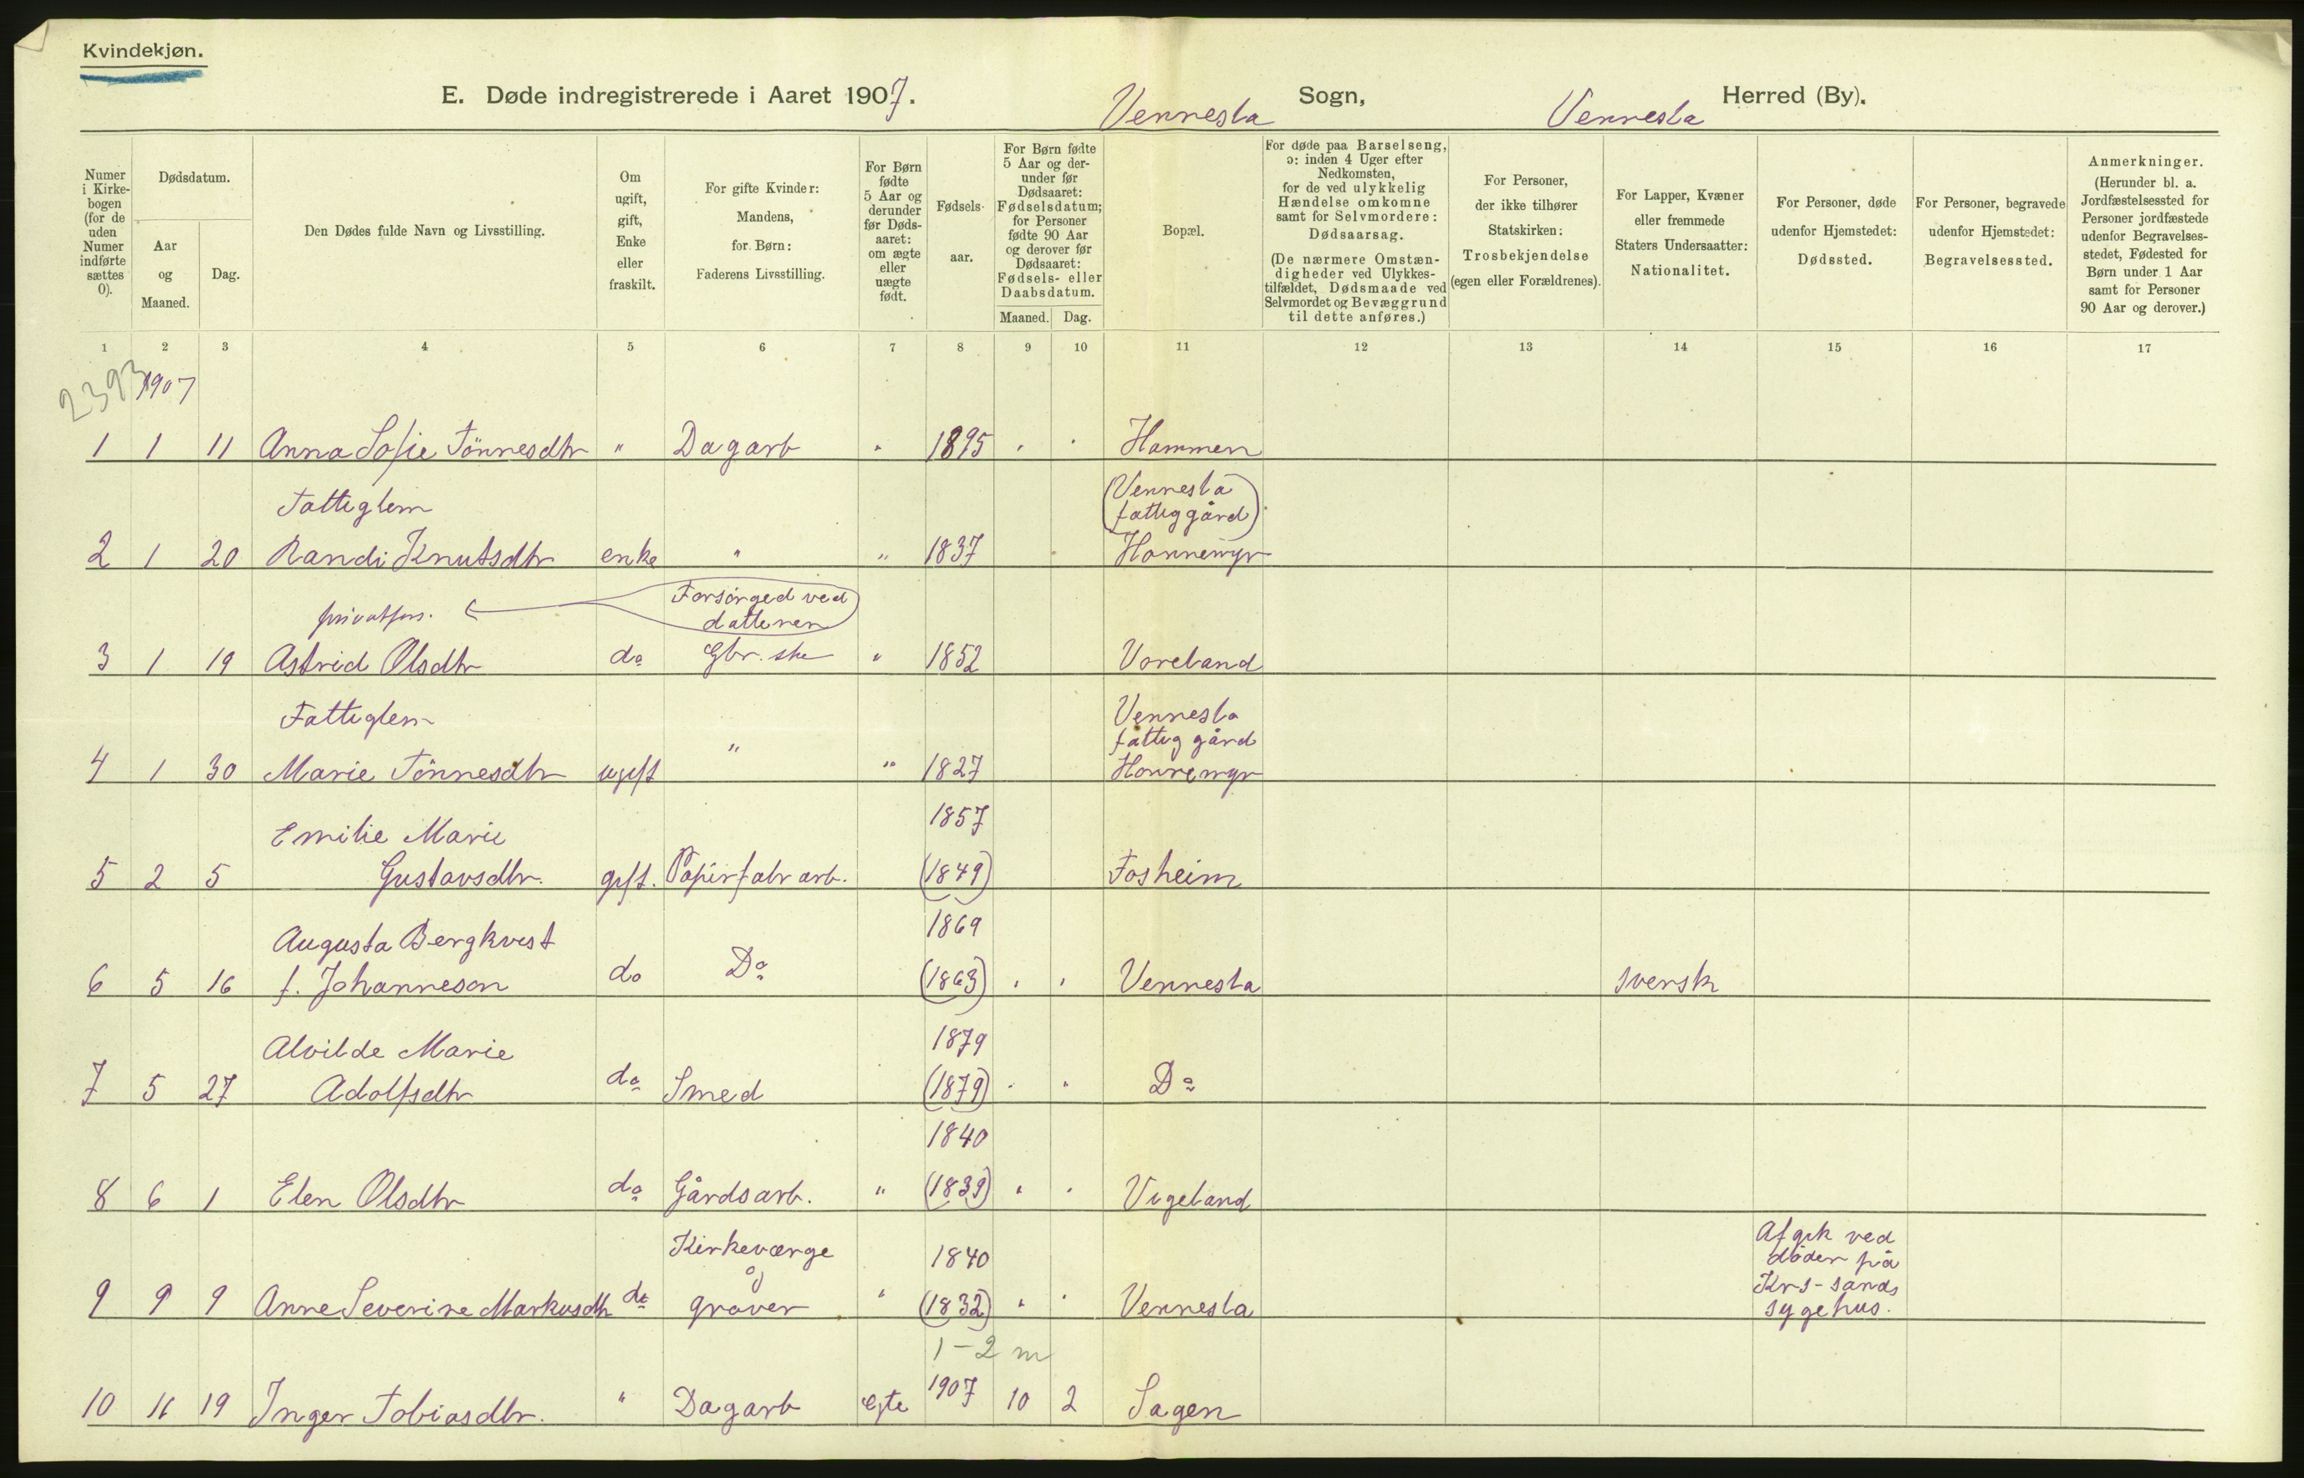 Kvindekjøn.
E. Døde indregistrerede i Aaret 1907. Vennesla Sogn, Vennesla Herred (By).
Numer i Kirkebogen (for de uden Numer indførte sættes 0).
Dødsdatum.
Aar og Maaned.
Dag.
Den Dødes fulde Navn og Livsstilling.
Om ugift, gift, Enke eller fraskilt.
For gifte Kvinder: Mandens, for Børn: Faderens Livsstilling.
For Børn fødte 5 Aar og derunder før Dødsaaret: om ægte eller uægte født.
Fødselsaar.
For Børn fødte 5 Aar og derunder før Dødsaaret: Fødselsdatum; for Personer fødte 90 Aar og derover før Dødsaaret: Fødsels- eller Daabsdatum.
Maaned. Dag.
Bopæl.
For døde paa Barselseng, ɔ: inden 4 Uger efter Nedkomsten, for de ved ulykkelig Hændelse omkomne samt for Selvmordere: Dødsaarsag. (De nærmere Omstændigheder ved Ulykkestilfældet, Dødsmaade ved Selvmordet og Bevæggrund til dette anføres.)
For Personer, der ikke tilhører Statskirken: Trosbekjendelse (egen eller Forældrenes).
For Lapper, Kvæner eller fremmede Staters Undersaatter: Nationalitet.
For Personer, døde udenfor Hjemstedet: Dødssted.
For Personer, begravede udenfor Hjemstedet: Begravelsessted.
Anmerkninger. (Herunder bl. a. Jordfæstelsessted for Personer jordfæstede udenfor Begravelsesstedet, Fødested for Børn under 1 Aar samt for Personer 90 Aar og derover.)
1 2 3 4 5 6 7 8 9 10 11 12 13 14 15 16 17
2393 1907
1 1 11 Anna Sofie Tönnesdtr " Dagarb " 1895 " " Hammen
Fattiglem (Vennesla fattiggård)
2 1 20 Randi Knutsdtr enke " " 1837 Honnemyr
privatfors. Forsörged ved datteren
3 1 19 Astrid Olsdtr do Gbr. ske " 1852 Voreland
Fattiglem Vennesla fattiggård
4 1 30 Marie Tönnesdtr ugift " " 1827 Honnemyr
Emilie Marie 1857
5 2 5 Gustavsdtr. gift. Papirfabr arb. (1849) Fosheim
Augusta Bergkvist 1869
6 5 16 f. Johanneson do Do (1863) " " Vennesla svensk
Alvilde Marie 1879
7 5 27 Adolfsdtr do Smed (1879) " " Do
1840
8 6 1 Elen Olsdtr do Gårdsarb. " (1839) " " Vigeland
Kirkeværge og 1840 Afgik ved döden på
9 9 9 Anne Severine Markusdtr do graver " (1832) " " Vennesla Krs-sands sygehus.
1-2 m
10 11 19 Inger Tobiasdtr. " Dagarb egte 1907 10 2 Sagen